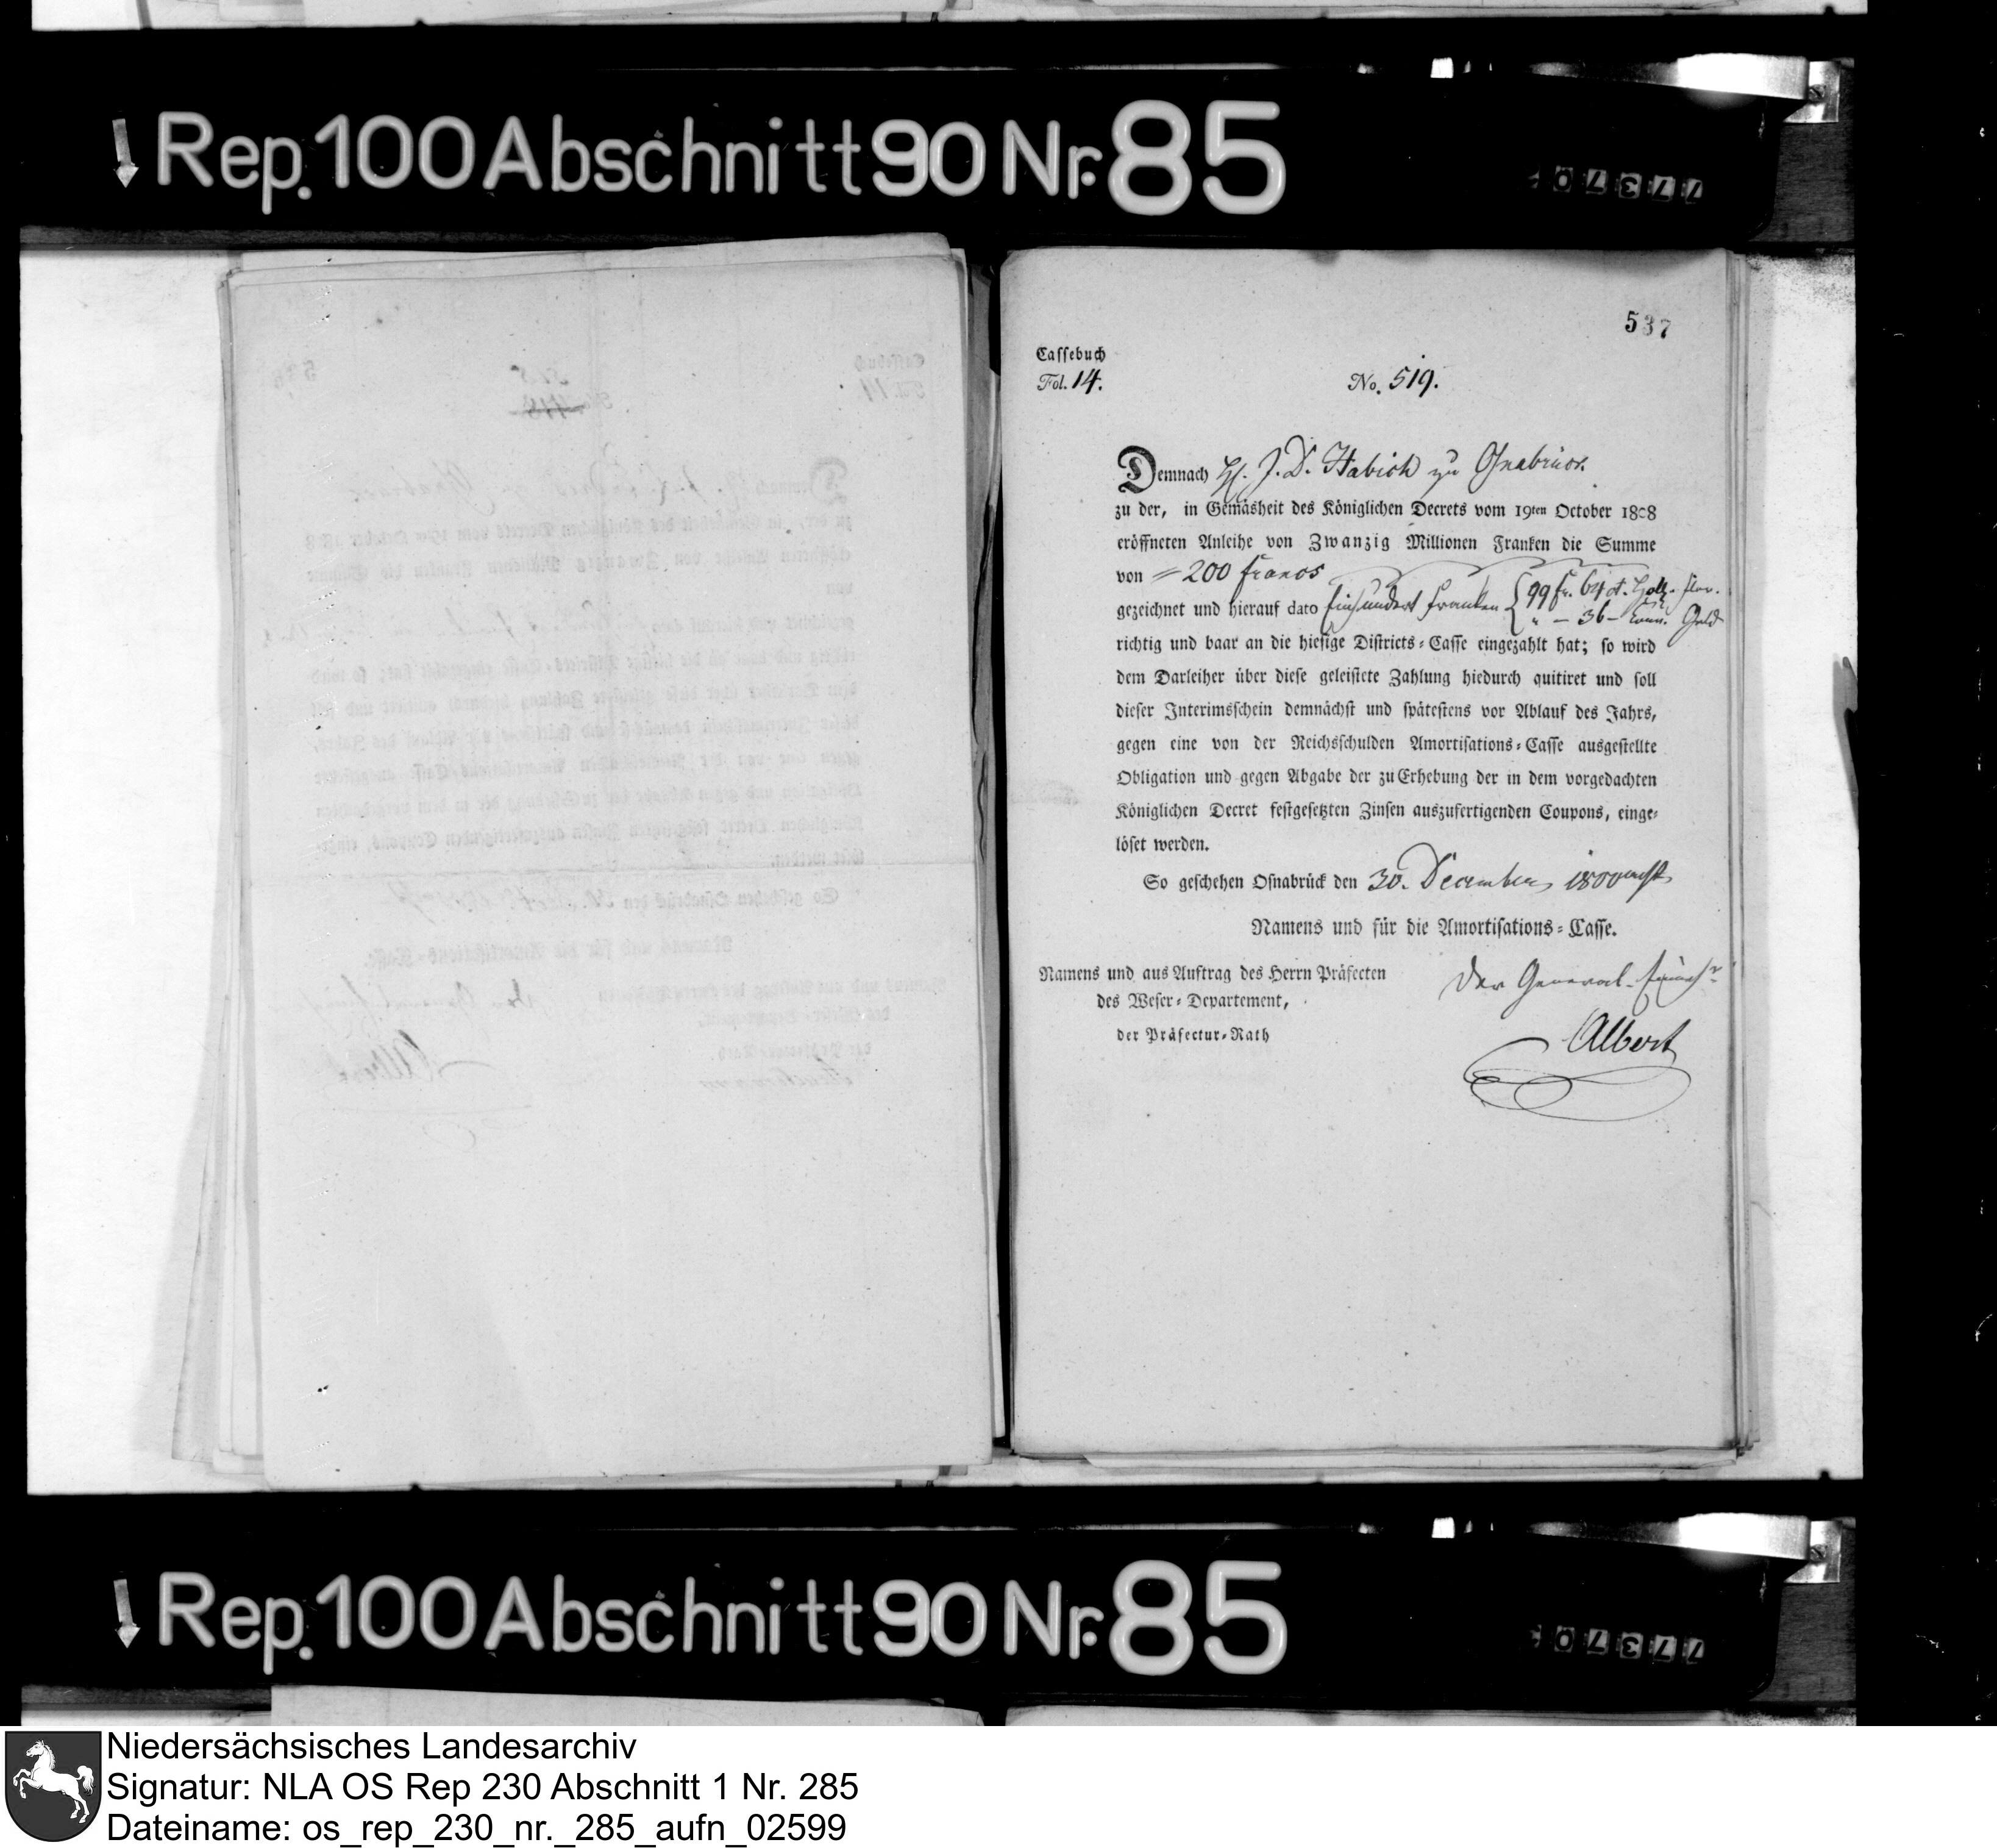 Rep. 100 Abschnitt 90 Nr. 85
77370
537
Cassebuch
Fol. 14.
No. 519.
Demnach H. J. D. Habich zu Osnabrück
zu der, in Gemäsheit des Königlichen Decrets vom 19ten October 1808
eröffneten Anleihe von Zwanzig Millionen Franken die Summe
von = 200 francs
gezeichnet und hierauf dato Einhundert Franken { 99 fr. 64 ct.
" – 36 –
richtig und baar an die hiesige Districts-Casse eingezahlt hat; so wird
dem Darleiher über diese geleistete Zahlung hiedurch quitiret und soll
dieser Interimsschein demnächst und spätestens vor Ablauf des Jahrs,
gegen eine von der Reichsschulden Amortisations-Casse ausgestellte
Obligation und gegen Abgabe der zu Erhebung der in dem vorgedachten
Königlichen Decret festgesetzten Zinsen auszufertigenden Coupons, einge-
löset werden.
So geschehen Osnabrück den 30. December
Namens und für die Amortisations-Casse.
Namens und aus Auftrag des Herrn Präfecten
des Weser-Departement,
der Präfectur-Rath
Der General-
Albert
Rep. 100 Abschnitt 90 Nr. 85
77370
Niedersächsisches Landesarchiv
Signatur: NLA OS Rep 230 Abschnitt 1 Nr. 285
Dateiname: os_rep_230_nr._285_aufn_02599